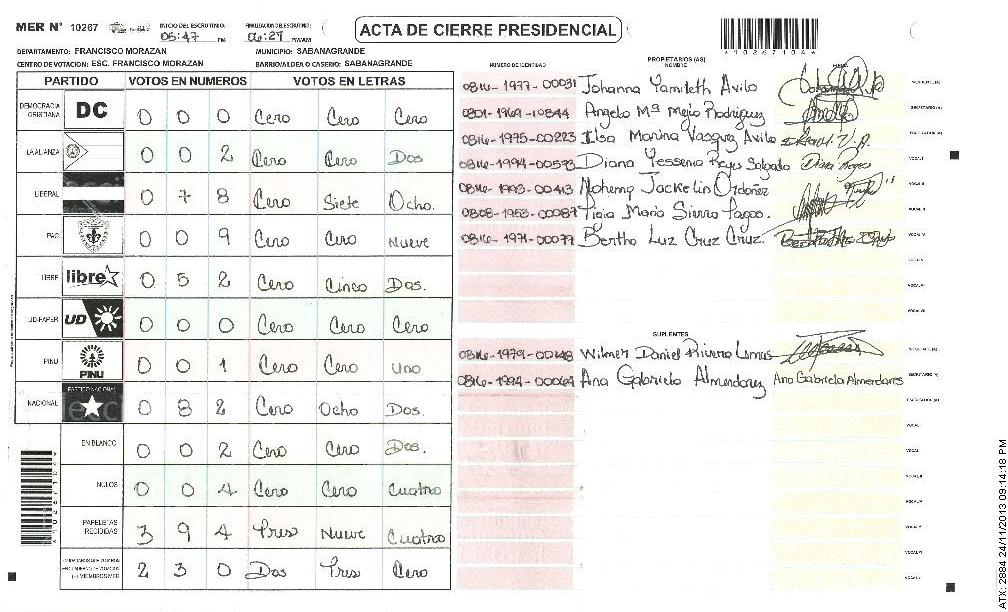 MER N° 10267 INICIO DEL ESCRUTINIO: 05:47 PM FINALIZACION DEL ESCRUTINIO: 06:27 PM/AM
ACTA DE CIERRE PRESIDENCIAL
DEPARTAMENTO: FRANCISCO MORAZAN MUNICIPIO: SABANAGRANDE
CENTRO DE VOTACION: ESC. FRANCISCO MORAZAN BARRIO/ALDEA O CASERIO: SABANAGRANDE
PARTIDO VOTOS EN NUMEROS VOTOS EN LETRAS
DEMOCRACIA CRISTIANA DC 0 0 0 Cero Cero Cero
LA ALIANZA 0 0 2 Cero Cero Dos
LIBERAL 0 7 8 Cero Siete Ocho.
PAC 0 0 9 Cero Cero Nueve
LIBRE libre 0 5 2 Cero Cinco Dos.
UD-FAPER UD 0 0 0 Cero Cero Cero
PINU PINU 0 0 1 Cero Cero Uno
NACIONAL PARTIDO NACIONAL 0 8 2 Cero Ocho Dos.
EN BLANCO 0 0 2 Cero Cero Dos.
NULOS 0 0 4 Cero Cero Cuatro
PAPELETAS RECIBIDAS 3 9 4 Tres Nueve Cuatro
2 3 0 Dos Tres Cero
NUMERO DE IDENTIDAD PROPIETARIOS (AS) NOMBRE FIRMA
0816-1977-00031 Johanna Yamileth Avilo
0801-1969-10844 Angelo Mª Mejio Rodriguez
0816-1975-00223 Ilsa Marina Vasquez Avilo
0816-1994-00573 Diana Yessenia Reyes Salgado Diana Reyes
0816-1993-00413 Nohemy Jackelin Ordoñez
0808-1953-00087 Maria Sierra
0816-1971-00077 Bertha Luz Cruz Cruz.
SUPLENTES
Wilmer Daniel Rivera Lamus
0816-1994-00064 Ana Gabriela Almendarez Ana Gabriela Almendares
ATX: 2884 24/11/2013 09:14:18 PM